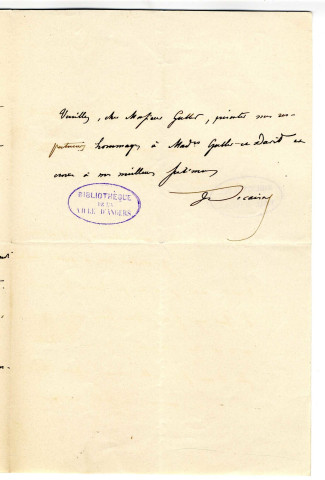 Veuillez, cher Monsieur Guillot, présenter mes res-
pectueux hommages à Made Guillot et David et
croire à mes meilleurs sentiments
BIBLIOTHÈQUE
DE LA
VILLE D'ANGERS